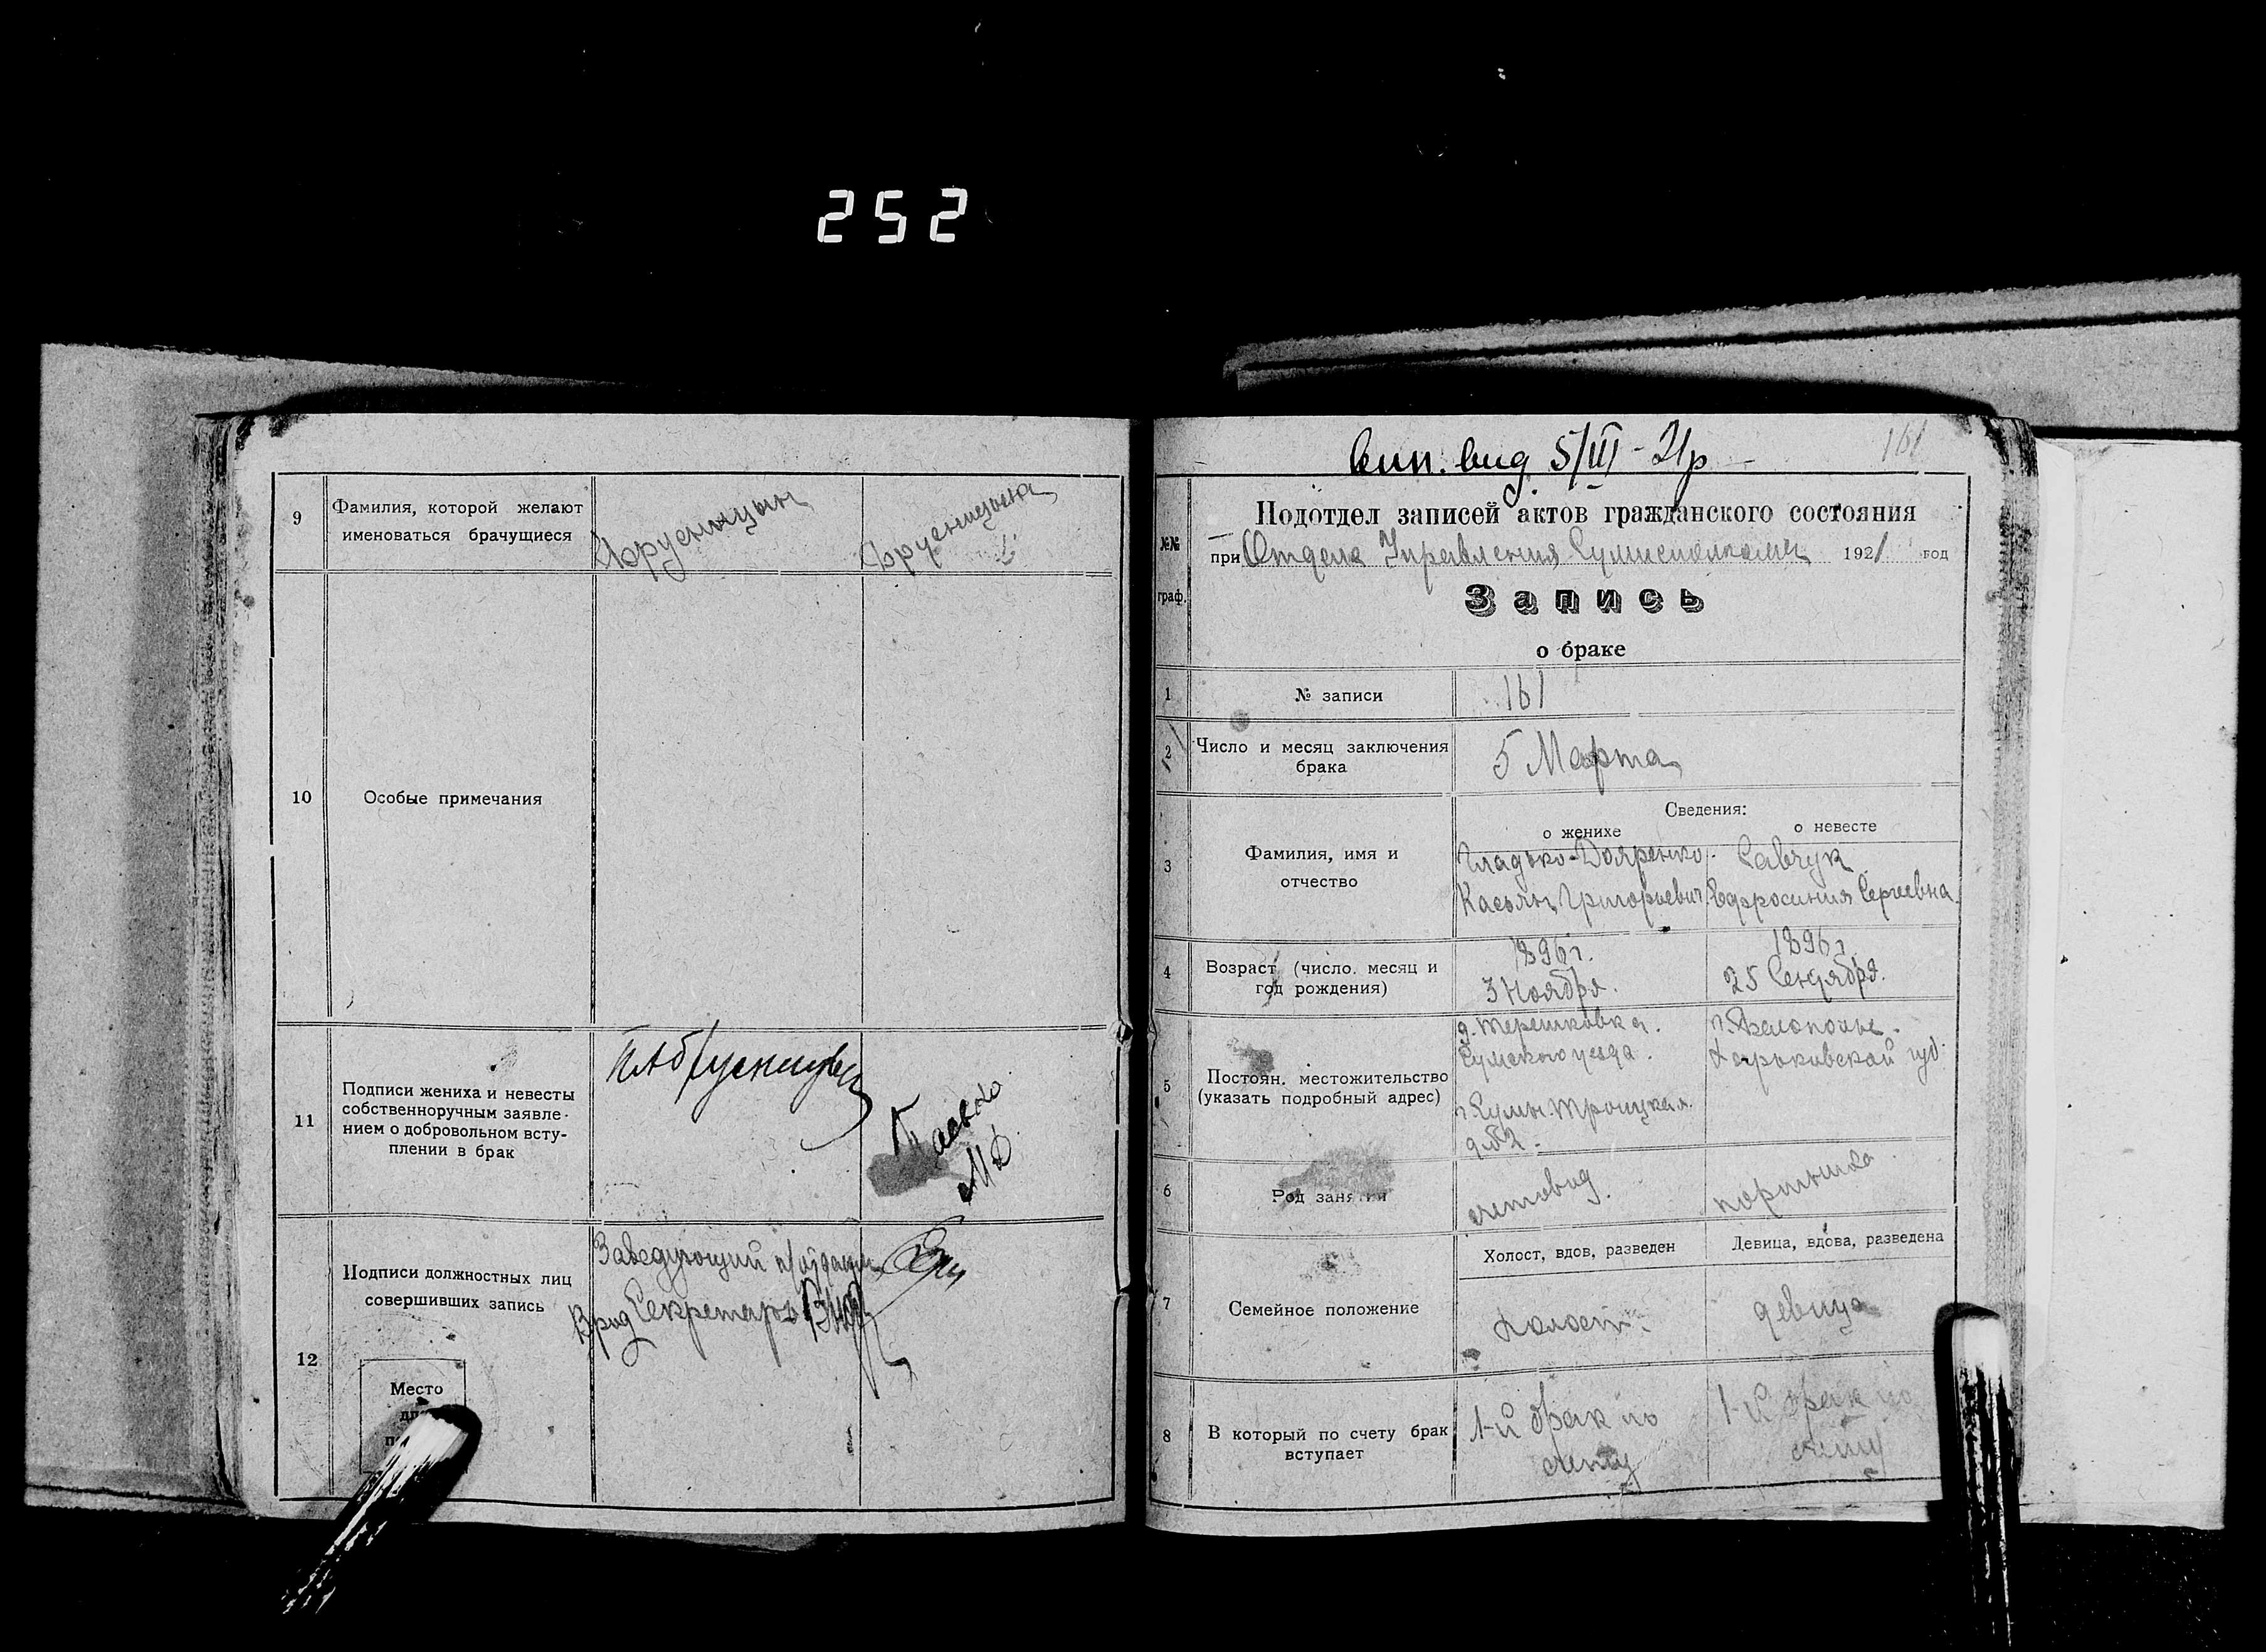 252
9
Фамилия, которой желают
именоваться брачущиеся
Брусницын
Брусницына
10
Особые примечания
11
Подписи жениха и невесты
собственноручным заявле-
нием о добровольном всту-
плении в брак
12
Подписи должностных лиц
совершивших запись
Заведующий
Секретарь
Место
вид 5/III - 21р
161
№№
граф.
Подотдел записей актов гражданского состояния
при Отдела Управления Сумисполкома 1921 год
Запись
о браке
1
№ записи
161
2
Число и месяц заключения
брака
5 Марта
Сведения:
о женихе
о невесте
3
Фамилия, имя и
отчество
Гладько-Дояренко
Касьян Григорьевич
Савчук
Ефросиния Сергеевна
4
Возраст (число, месяц и
год рождения)
1896 г.
3 Ноября.
1896 г.
25 Сентября.
5
Постоян. местожительство
(указать подробный адрес)
д. Терешковка.
Сумского уезда.
г. Сумы Троицкая
д № 2.
г. Белополье.
Харьковской губ.
6
Род занятий
счетовод.
портниха
7
Семейное положение
Холост, вдов, разведен
Девица, вдова, разведена
холост.
девица
8
В который по счету брак
вступает
1-й брак по
счету
1-й брак по
счету